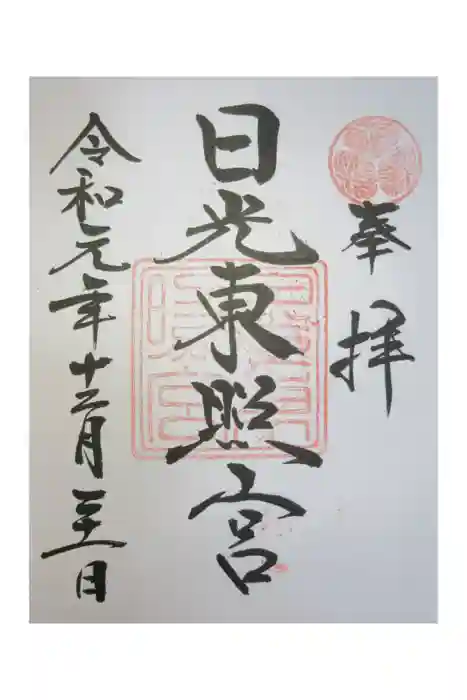 奉拝
日光東照宮
令和元年十二月二十一日